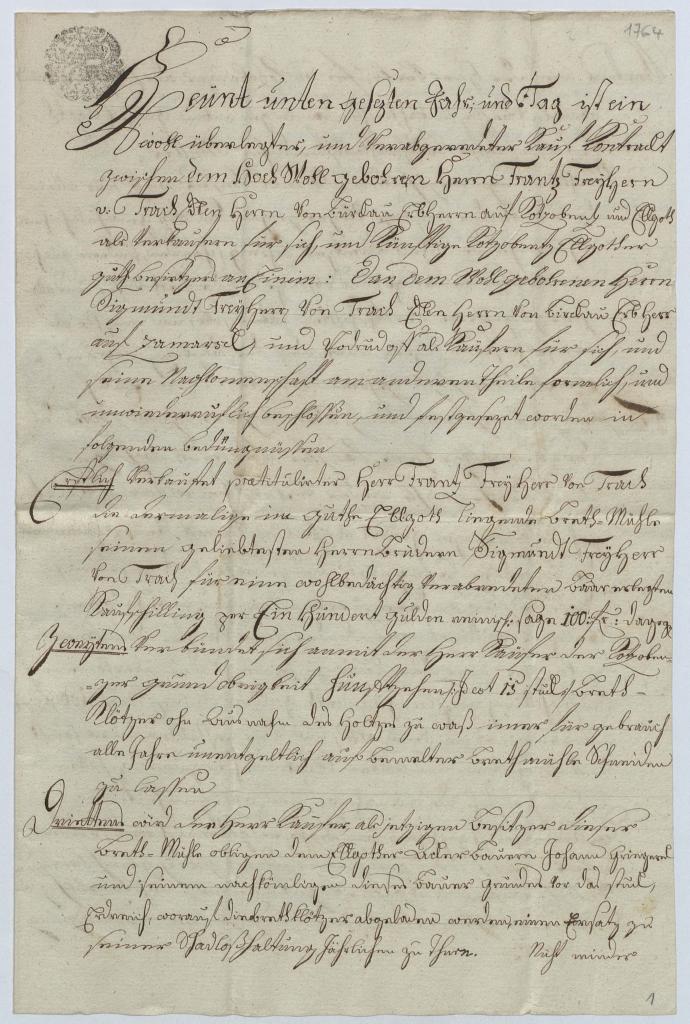 1764
Heünt unten gesezten Jahr, und Tag ist ein
wohl überlegter, und Verabgeredeter Kauf Kontrackt
zwischen dem Hoch Wohl gebohren Herrn Frantz FreyHern
v: Trach Edlen Herrn Von Bürckau ErbHerrn auf Kotzobentz und Ellgoth
als Verkaufern für sich, und Künftige Kotzobentz Ellgother
guths besitzern an Einem: Dan dem Wohl gebohrenen Herrn
Sigmündt FreyHerr Von Trach Edlen Herrn Von Birckau ErbHerr
auf Zamarsk, und als Käufern für sich, und
seine Nachkomenschaft am anderen Theile formlich, und
unwiederruflich beschlossen, und festgesezet worden in
folgenden bedüngnüssen
Erstlich Verkaufet prætitulirter Herr Frantz Frey Herr Von Trach
die dermalige im guthe Ellgoth liegende Breth-Mühle
seinem geliebtesten Herrn Brudern Sigmundt FreyHerr
Von Trach für eine wohlbedächtig Verabredeten baar erlegten
Kaufschilling per Ein Hundert gulden sage 100 f: dagegen
Zweÿtens Verbündet sich anmit der Herr Käufer der Kotzoben-
-zer grund obrigkeit fünfzehen, dicot 15 stuk breth-
Klötzer ohn Ausnahm des Holtzes zu waß imer für gebrauch
alle Jahre unentgeltlich auf bemelter brethmühle Schneiden
zu lassen
Drittens wird der Herr Käufer, als jetzigen besitzer dieser
Breth-Mühle obligen dem Ellgother Acker bauern Johann
und seinem nachkömligen dieses bauer grundes vor das stük
Erdreich, worauf die brethklötzer abgeladen werden, einen Ersatz zu
seiner Schadloßhaltung Jährlichen zu Thuen. Nicht minder
1